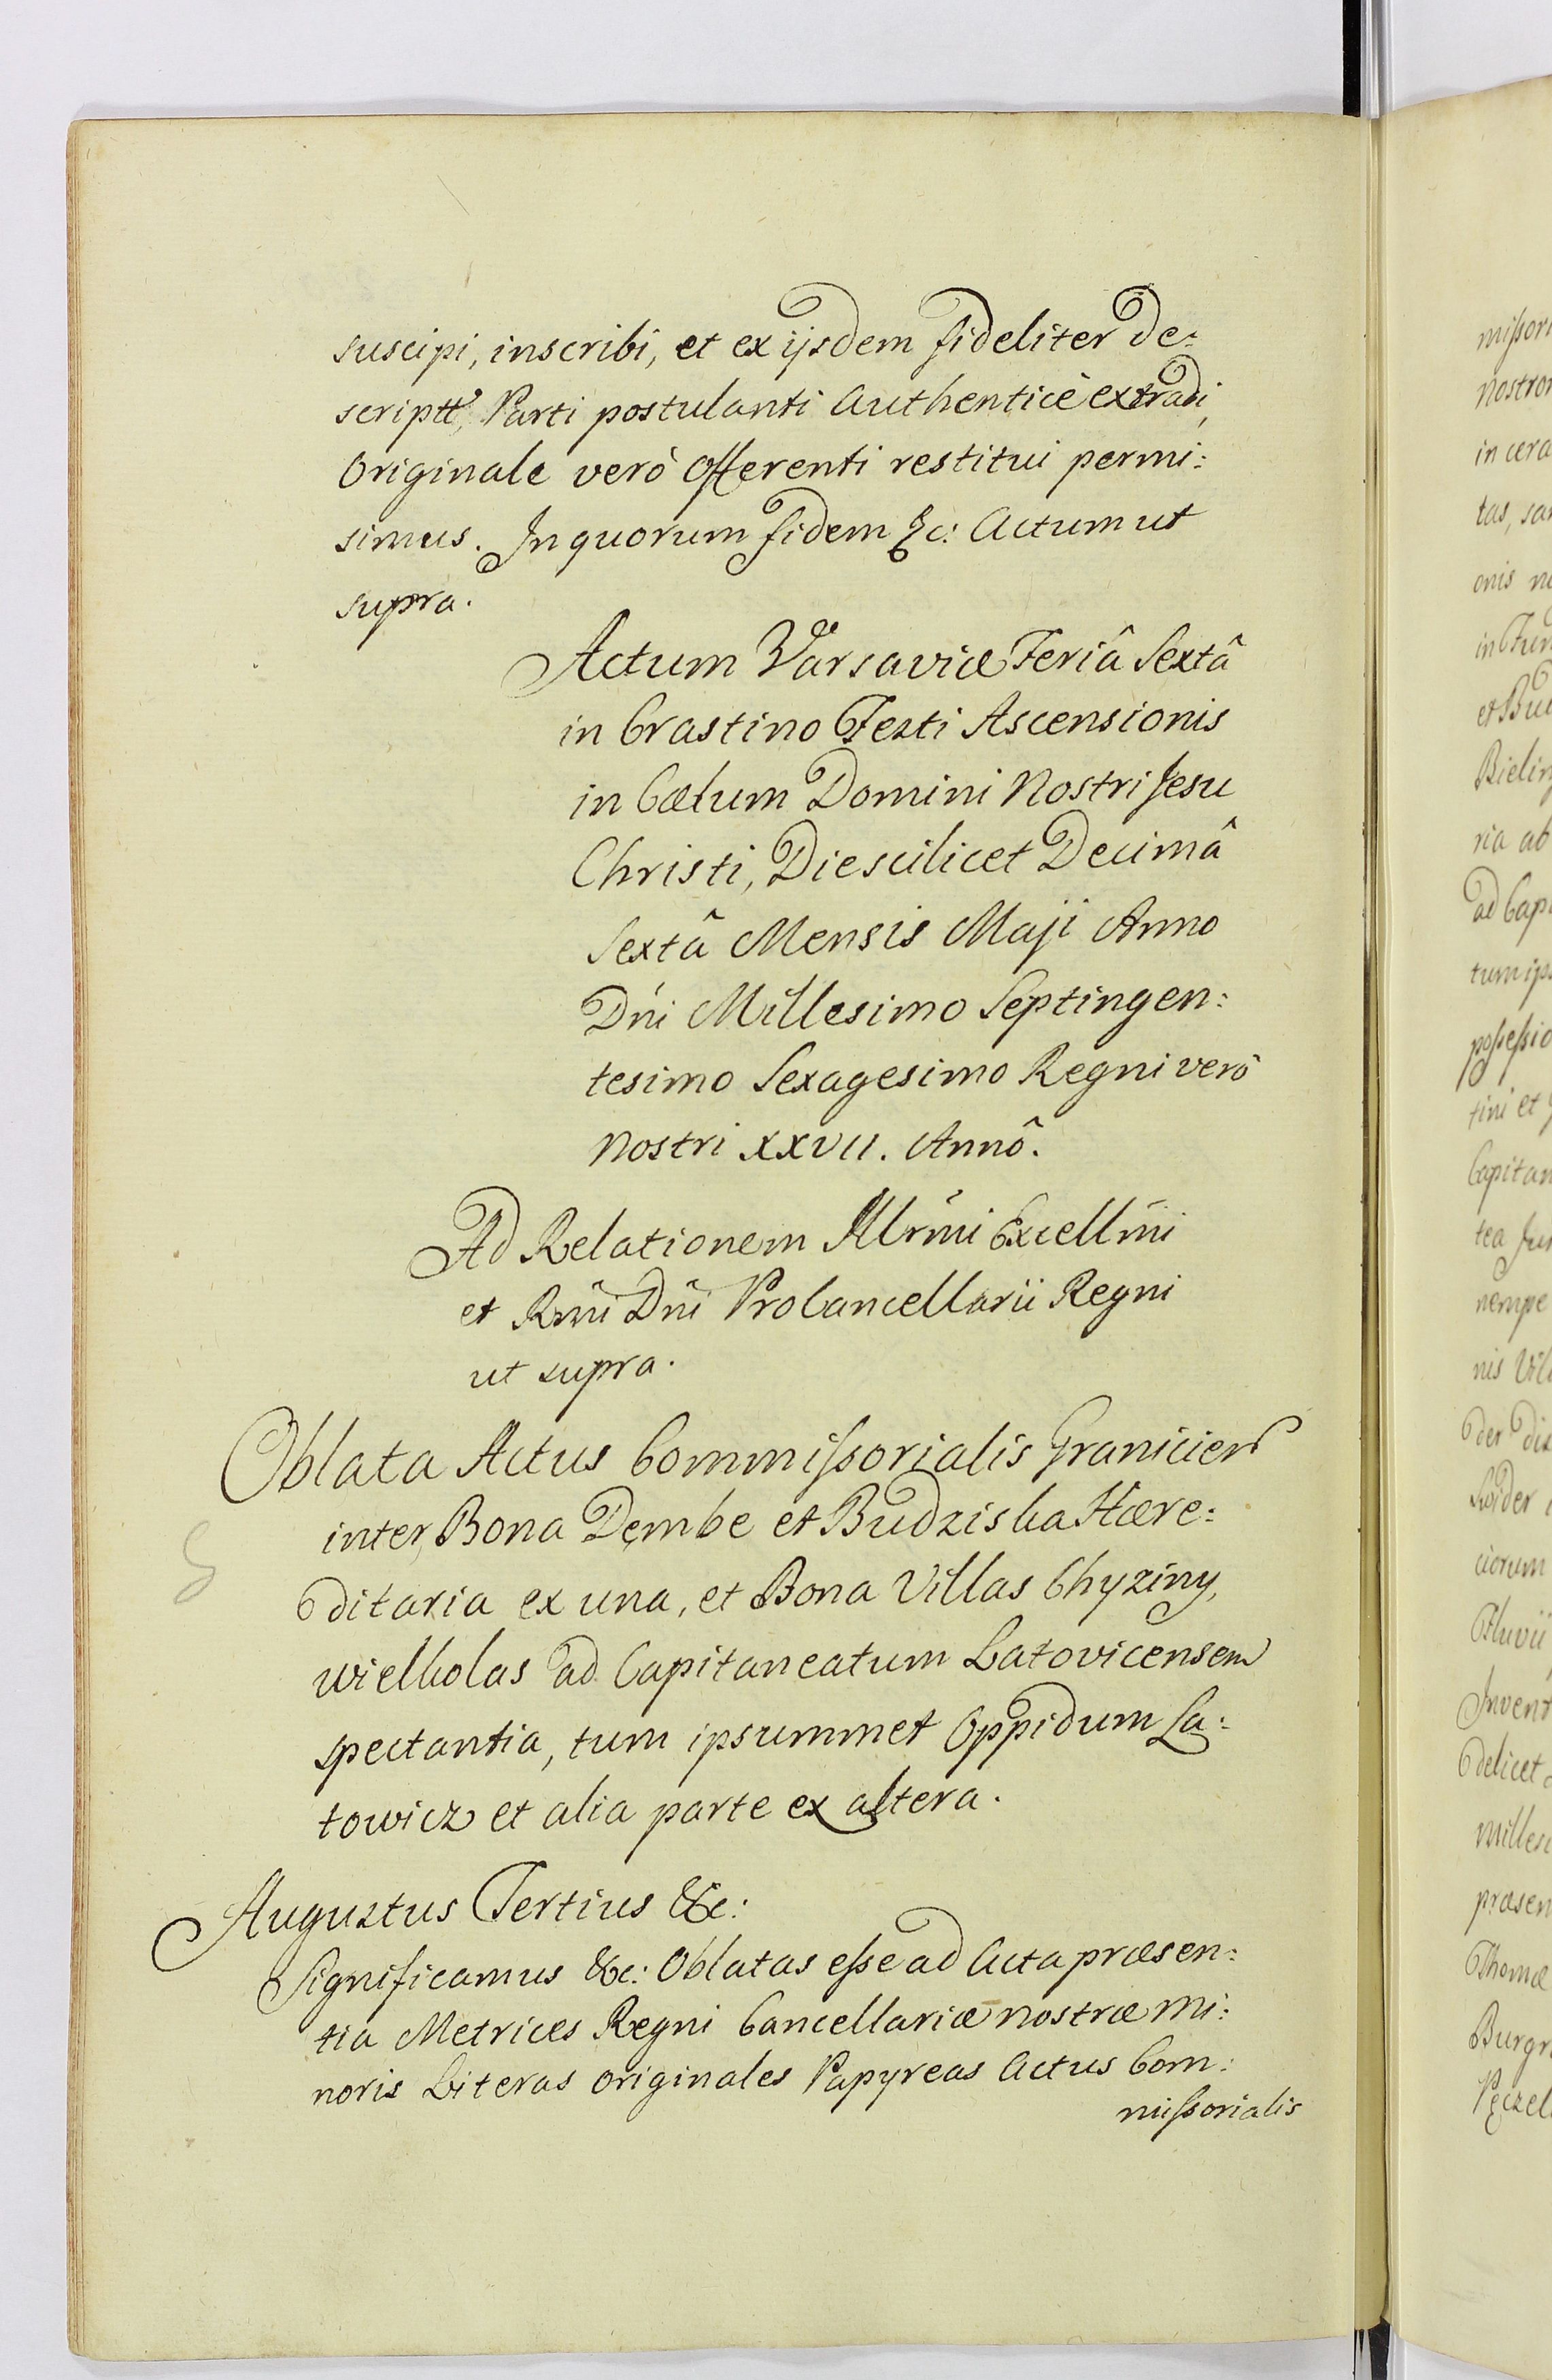 suscipi, inscribi, et ex ijsdem fideliter de:
scriptt, Parti postulanti Authenticè extradi,
Originale verò Offerenti restitui permi:
simus. In quorum fidem &c: Actum ut
supra.
Actum Varsaviæ Feriâ Sextâ
in Crastino Festi Ascensionis
in Cœlum Domini Nostri Jesu
Christi, Die scilicet Decimâ
Sextâ Mensis Maji Anno
Dńi Millesimo Septingen:
tesimo Sexagesimo Regni verò
Nostri XXVII. Annô.
Ad Relationem Illrm̃i Excellm̃i
et Rm̃i Dñi ProCancellarii Regni
ut supra.
Oblata Actus Commissorialis Granicier
inter Bona Dembe et Budziska Hære:
ditaria ex una, et Bona Villas Chyziny,
Wielkolas ad Capitaneatum Latovicensem
spectantia, tum ipsummet Oppidum La:
towicz et alia parte ex altera.
Augustus Tertius &c:
Significamus &c: Oblatas esse ad Acta præsen:
tia Metrices Regni Cancellariæ nostræ Mi:
noris Literas originales Papyreas Actus Com:
missorialis
missori
nostror
in cera
tas, sa
onis
in
et Bu
Bielin
ria ab
ad Cap
tum ips
possessio
tini et
Capitan
tea Jur
nempe
nis Vil
der dis
Swider
ciorum
Fluvii
Invent
delicet
Milles
præsen
Thomæ
Burgr
Pęczel